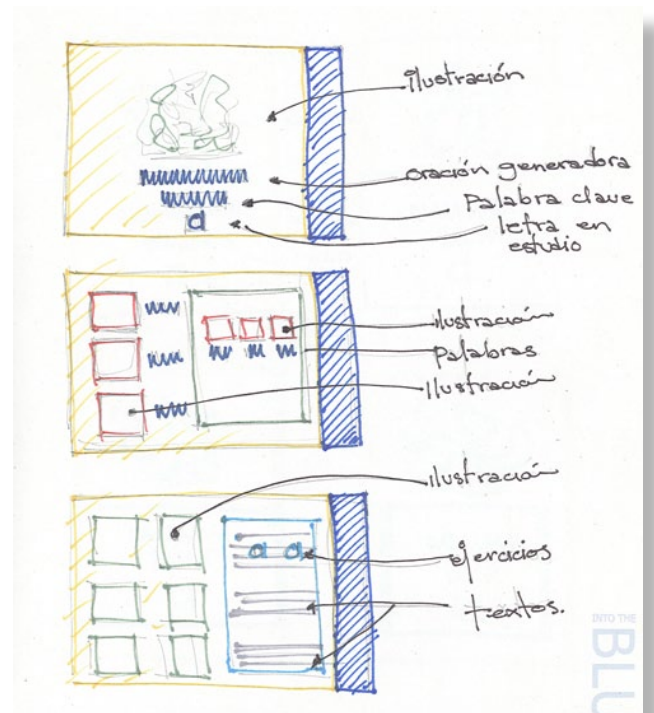 ilustración
oración generadora
Palabra clave
letra en
estudio
a
ilustración
Palabras
Ilustración
ilustración
ejercicios
a a
textos.
INTO THE
BLU